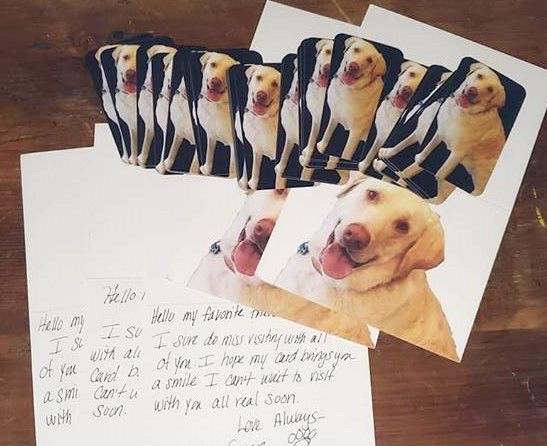 Hello
Hello my
I
of you
a smi
with
I su
with all
Card b
Can't
soon.
Hello my favorite
I sure do miss visiting with all
of you. I hope my card brings you
a smile I can't wait to visit
with you all real soon.
Love Always-